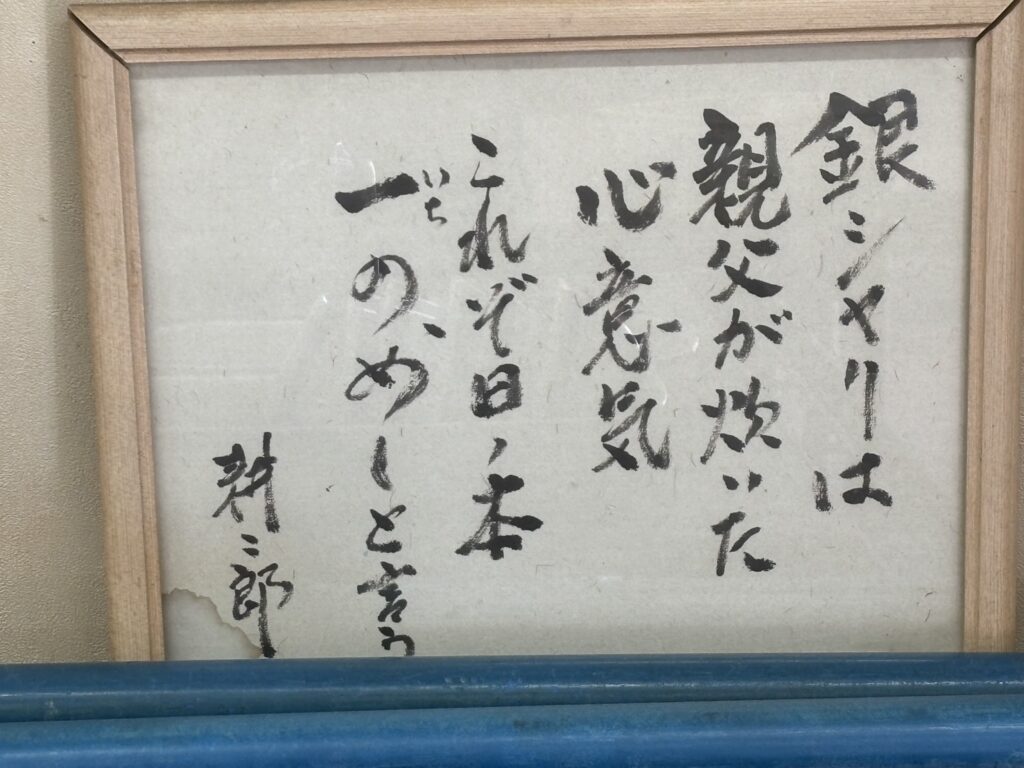 銀シャリは
親父が炊いた
心意気
これぞ日ノ本
一の、めしと言う
いち
耕二郎